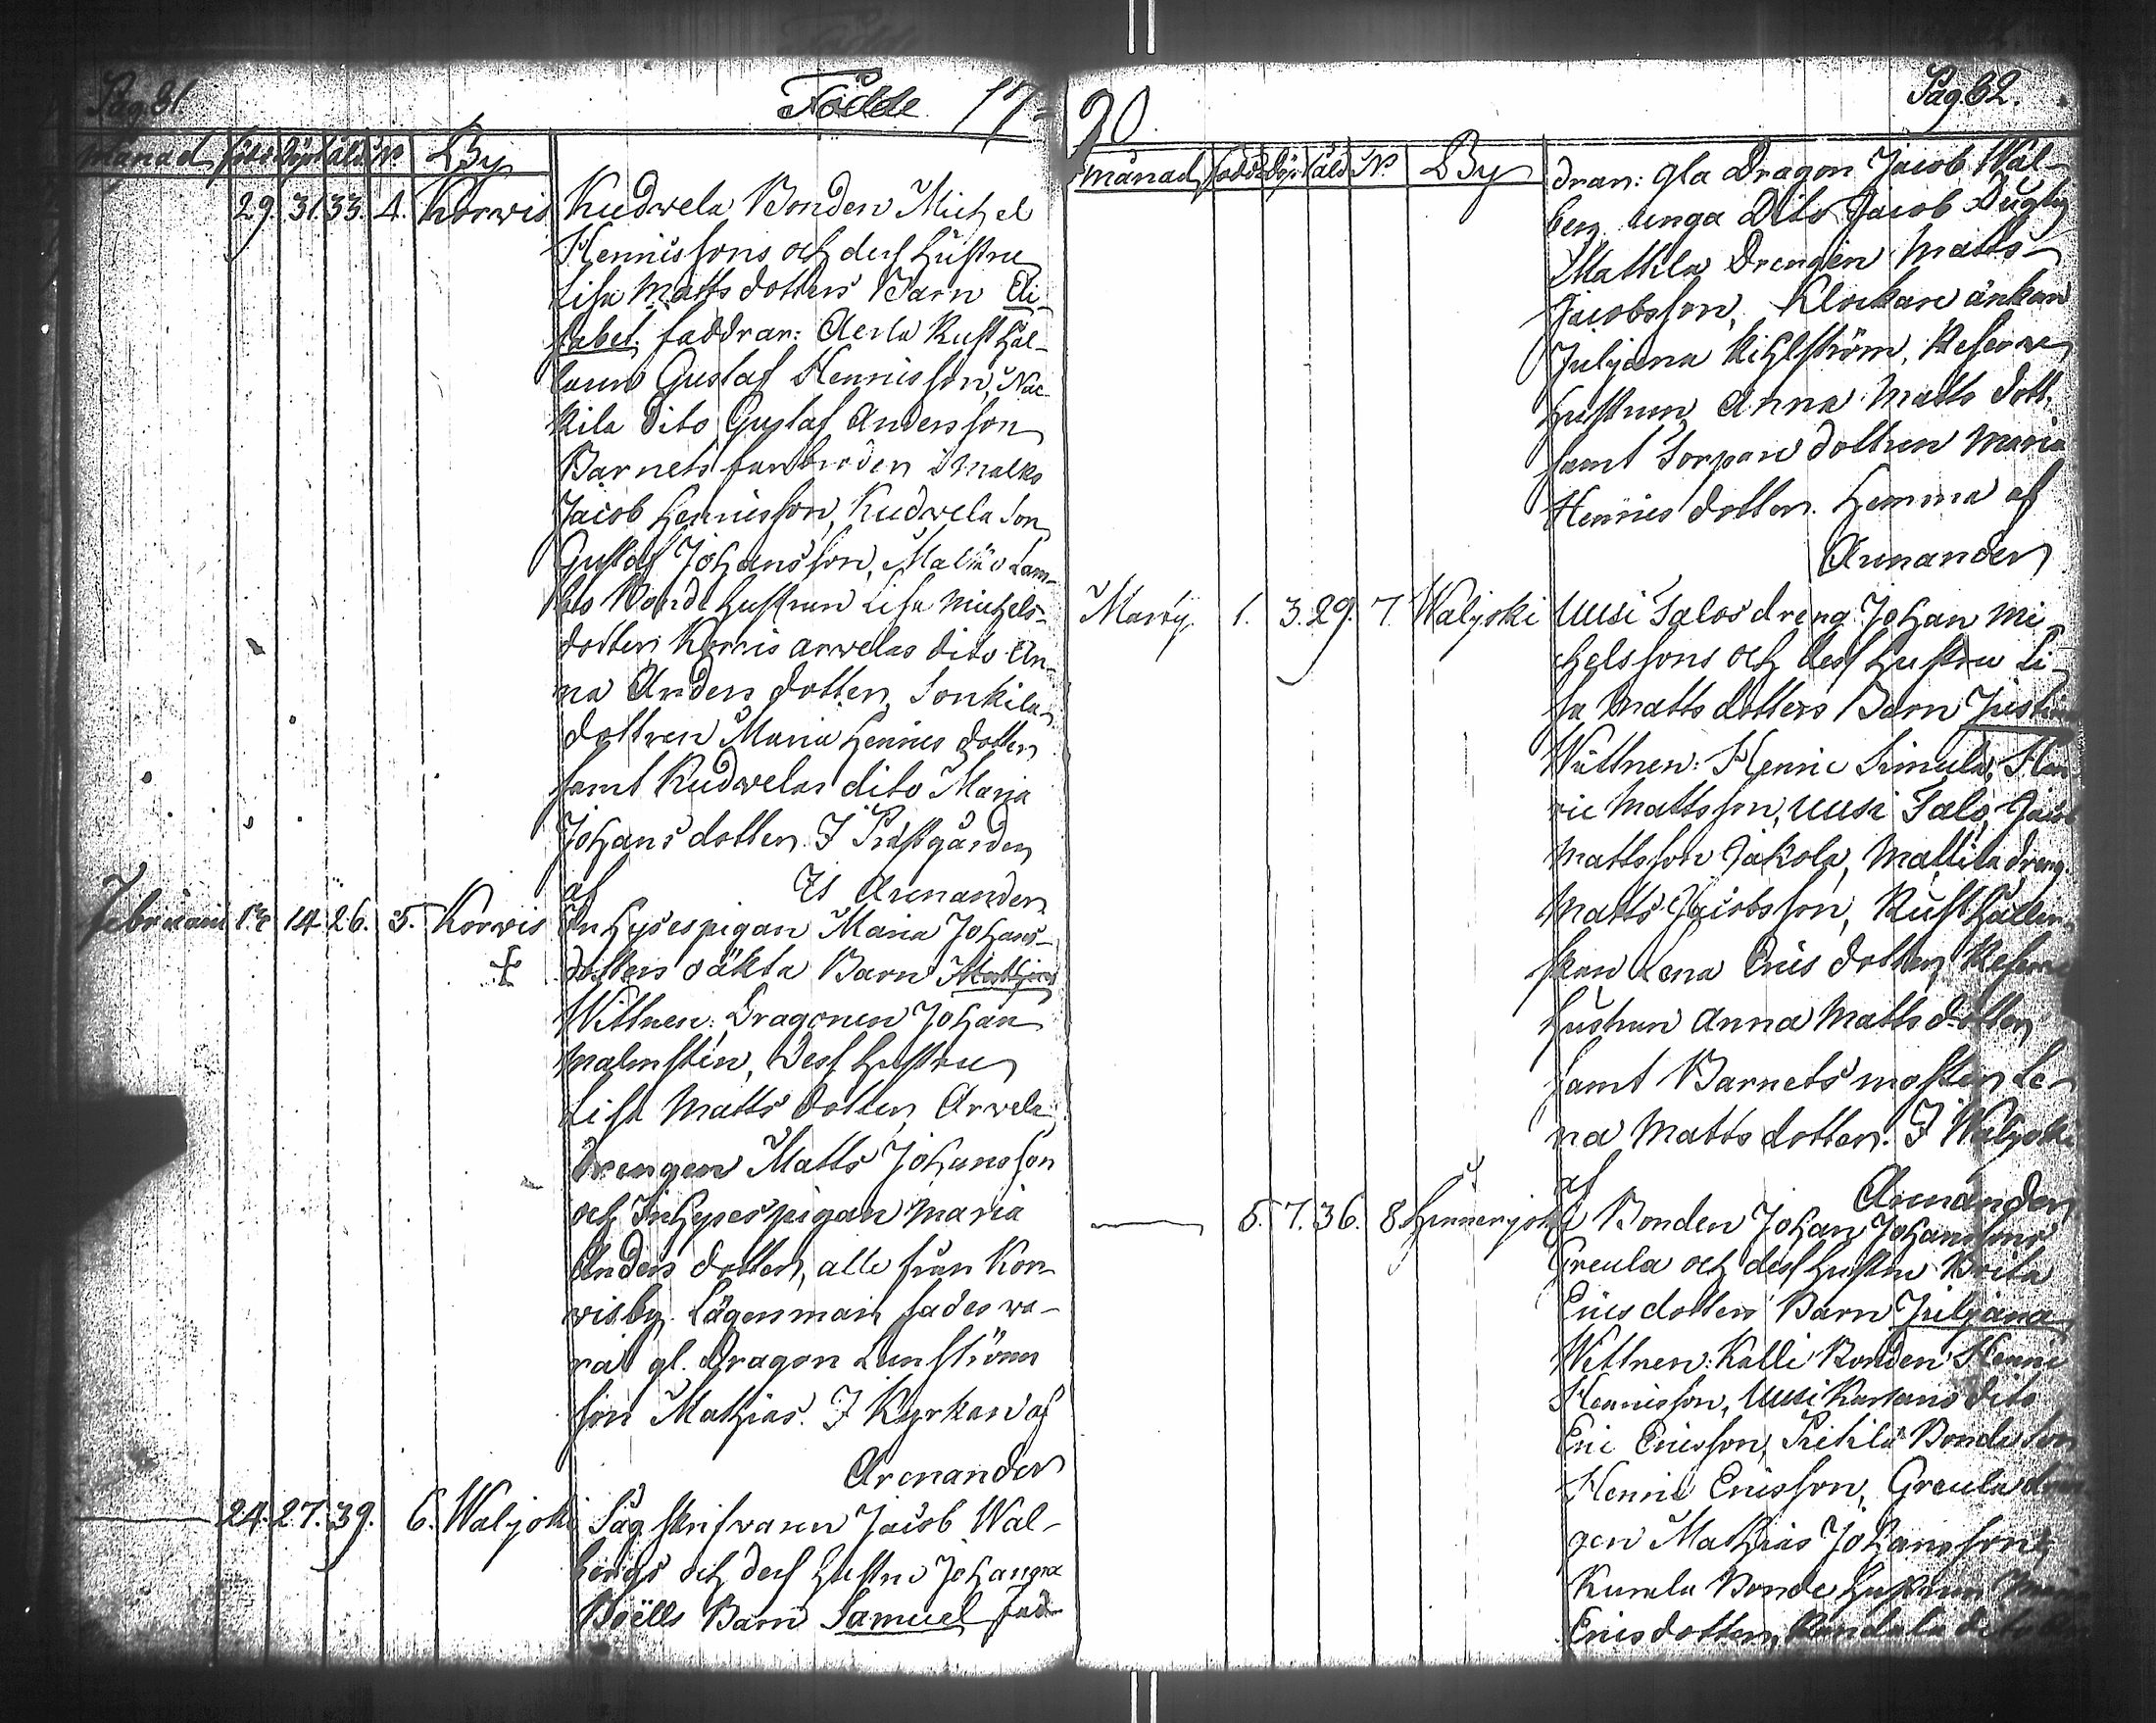 Pag. 81.
Födde 17=
Månad född döpt åld. No. By
29. 31. 33. 4. Korwis Kudwela Bonden Michel
Hennissons och dess hustru
Lisa Matts dotters Barn Eli-
sabet. faddrar: Aerla Rusthål-
laren Gustaf Hennisson, Nac-
kila dito Gustaf Andersson
Barnets farbroder Smalks
Jacob Hennisson, Kudwela Son
Gustaf Johansson, Lam-
bis Bonde hustrun Lisa Michels-
dotter Korvis arwelas dito An-
na Anders dotter, Sonkila
dottren Maria Hennes dotter
samt Kudwelas dito Maria
Johans dotter. I Prästgården
af Es Armander
Februarii 14. 26. 5. Korwis Inhysespigan Maria Johans-
dotters oäkta Barn Mathias
Wittnen: Dragonen Johan
Malmstén, dess hustru
Lisa Matts dotter, Arwela
Drengen Matts Johansson
och Inhyses pigan Maria
Anders dotter, alle från Kor-
wis by. Lägersman sades wa-
ra gl. Dragon Lunströms
son Mathias. I Kyrkan af
Armander
24. 27. 39. 6. Waljoki Sågskrifvaren Jacob Wal-
bergs och dess hustru Johanna
Boëlls Barn Samuel fad-
90.
Pag. 82.
Månad född döpt åld No. By
drar: gla Dragon Jacob Wal-
berg unga Dito Jacob Dugtig
Mattila Drengen Matts
Jacobsson, Klockare änkan
Juljana Kihlström, Reserve
hustrun Anna Matts dott.
samt Sorpan dottren Maria
Hennes dotter. Hemma af
Armander
Martij. 1. 3. 29. 7. Waljoki Uusi Salos dreng Johan Mi-
chelssons och dess hustru Li-
sa Matts dotters Barn
Wittnen: Henric Simula, Hen-
ric Mattsson, Uusi Salo, Jacob
Mattsson Jakola, Mattila dreng.
Matts Jacobsson, Rusthåller-
skan Lena Erics dotter, Reserve
hustrun Anna Matts dotter
samt Barnets moster Le-
na Matts dotter. I Waljoki
af Armander
5. 7. 36. 8. Hennerjoki Bonden Johan Johanssons
Greula och dess hustru Brita
Erics dotters Barn Juljana
Wittnen: Kalli Bonden Henric
Hennisson, Uusi Kartano dito
Eric Ericsson, Pritilä Bonde Son
Henric Ericsson, Greula dren-
gen Mathias Johansson,
Kumla Bonde hustrun
Erics dotter, dito